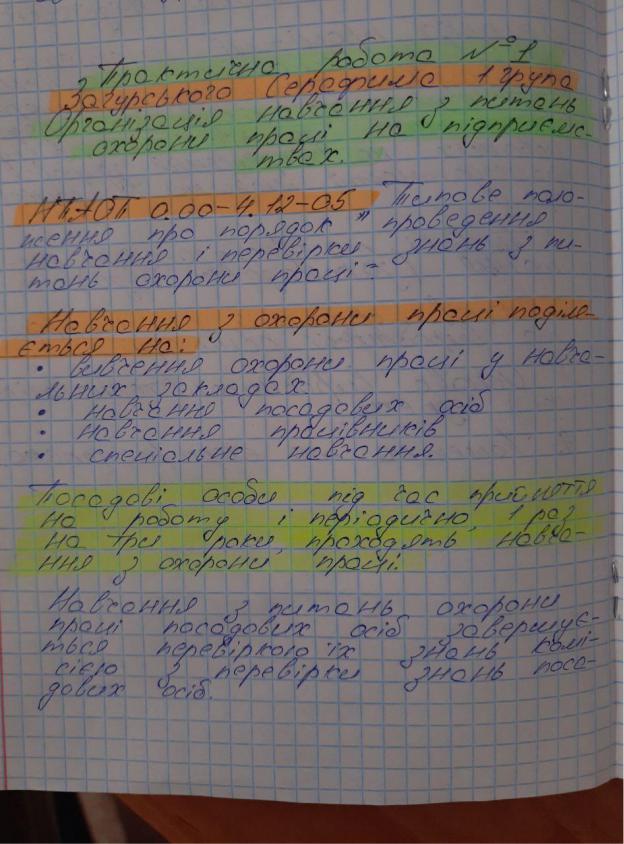 з Практична робота №1
Загурського Серафима 1 група
Організація навчання з питань
охорони праці на підприємс-
твах.
НПАОП 0.00-4.12-05 Типове поло-
ження про порядок " проведення
навчання і перевірки знань з пи-
тань охорони праці"
Навчання з охорони праці поділя-
ється на:
• вивчення охорони праці у навча-
льних закладах
• навчання посадових осіб
• навчання працівників
• спеціальне навчання.
Посадові особи під час прийняття
на роботу і періодично, 1 раз
на три роки, проходять навча-
ння з охорони праці.
Навчання з питань охорони
праці посадових осіб завершує-
ться перевіркою їх знань комі-
сією з перевірки знань поса-
дових осіб.